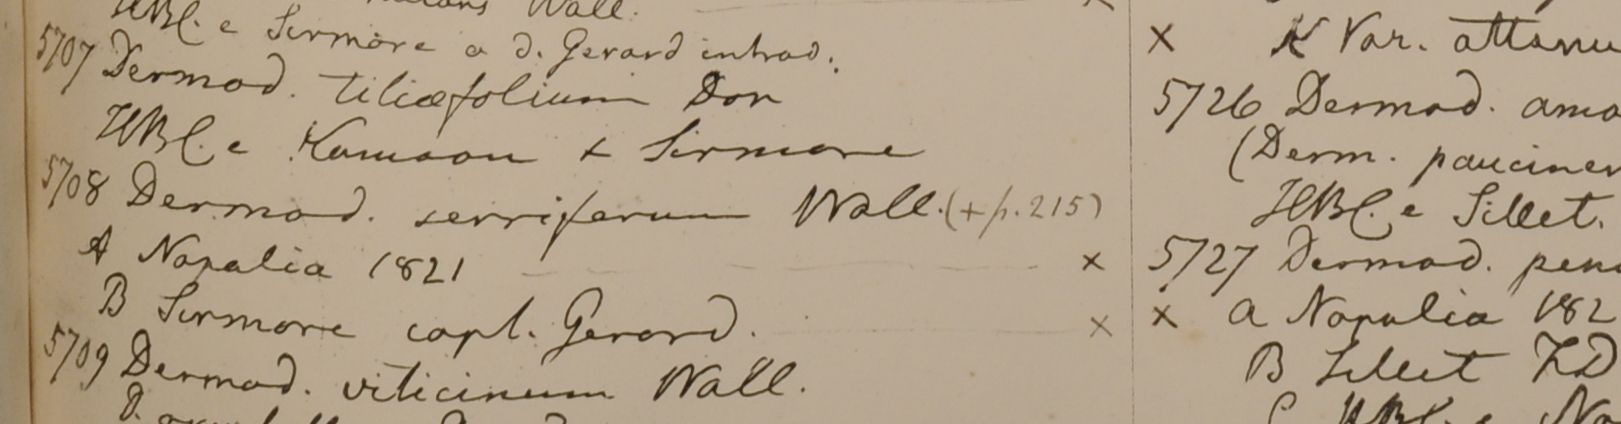 Wall.
HBC. e Sirmore a d. Gerard introd.
5707 Dermod. tiliæfolium Don
HBC. e Kamaon & Sirmore
5708 Dermod. serriferum Wall. (+ p. 215)
A Napalia 1821 x
B Sirmore capt. Gerard. x
5709 Dermod. viticinum Wall.
x Var. attenu
5726 Dermod. ama
(Derm. pauciner
HBC. e Sillet.
5727 Dermod. pen
x a Napalia 182
B Sillet FD
C HBC. e Na